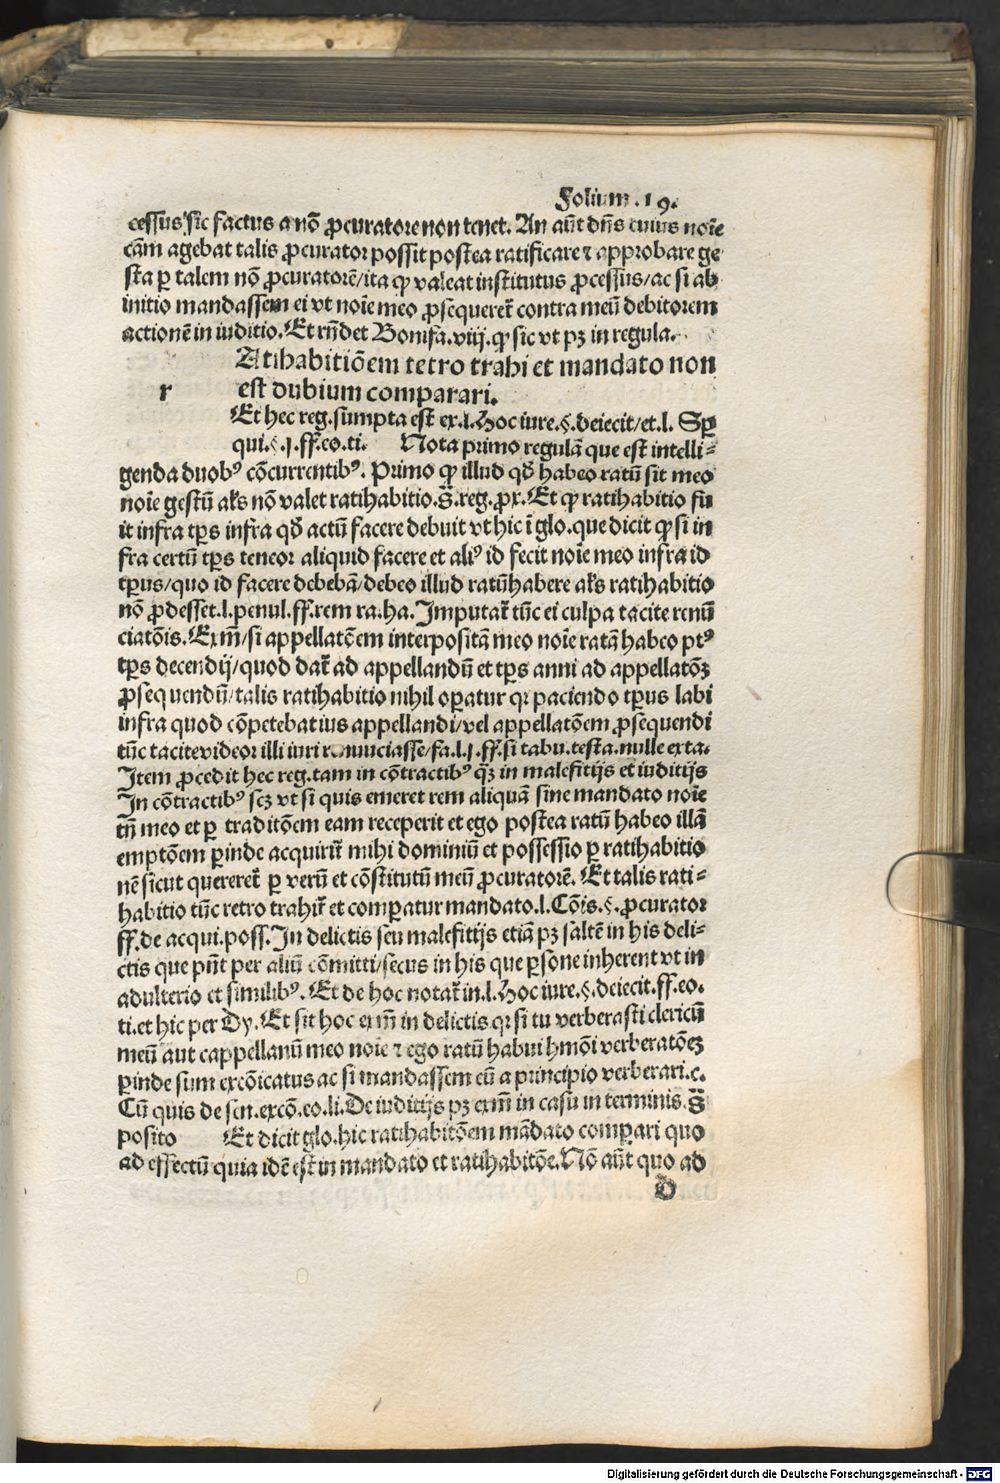 Folium .19.
cessus sic factus a nō ꝓcuratore non tenet. An aūt dn̄s cuius noīe
cām agebat talis ꝓcurator possit postea ratificare ⁊ approbare ge
sta ꝑ talem nō ꝓcuratorē/ita ꝙ valeat institutus ꝓcessus/ac si ab
initio mandassem ei vt noīe meo ꝓsequeret̄ contra meū debitorem
actionē in iuditio. Et rn̄det Bonifa.viij. ꝙ sic vt pꝫ in regula.
Atihabitiōem retro trahi et mandato non
r est dubium comparari.
Et hec reg.sumpta est ex.l.Hoc iure.§.deiecit/et.l. Sꝑ
qui.§.j.ff.eo.ti. Nota primo regulā que est intelli⸗
genda duobꝰ cōcurrentibꝰ. Primo ꝙ illud qd̄ habeo ratū sit meo
noīe gestū al̄s nō valet ratihabitio.s̄.reg.ꝓx. Et ꝙ ratihabitio fu
it infra tp̄s infra qd̄ actū facere debuit vt hic ī glo.que dicit ꝙ si in
fra certū tp̄s teneor aliquid facere et aliꝰ id fecit noīe meo infra id
tp̄us/quo id facere debebā/debeo illud ratū habere al̄s ratihabitio
nō ꝓdesset.l.penul.ff.rem ra.ha. Imputat̄ tūc ei culpa tacite renū
ciatōnis. Exm̄/si appellatōem interpositā meo noīe ratā habeo ptꝰ
tp̄s decendij/quod dat̄ ad appellandū et tp̄s anni ad appellatōꝫ
ꝓsequendū/talis ratihabitio nihil oꝑatur qꝛ paciendo tp̄us labi
infra quod cōpetebat ius appellandi/vel appellatōem ꝓsequendi
tūc tacite videor illi iuri renunciasse/fa.l.j.ff.si tabu.testa.nulle exta.
Item ꝓcedit hec reg.tam in cōtractibꝰ qͣꝫ in malefitijs et iuditijs
In cōtractibꝰ scꝫ vt si quis emeret rem aliquā sine mandato noīe
tn̄ meo et ꝑ traditōem eam receperit et ego postea ratū habeo illā
emptōem ꝑinde acquirit̄ mihi dominiū et possessio ꝑ ratihabitio
nē sicut quereret̄ ꝑ verū et cōstitutū meū ꝓcuratorē. Et talis rati⸗
habitio tūc retro trahit̄ et comꝑatur mandato.l.Cōis.§.ꝓcurator
ff.de acqui.poss. In delictis seu malefitijs etiā pꝫ saltē in his deli⸗
ctis que pn̄t per aliū cōmitti/secus in his que ꝑsone inherent vt in
adulterio et similibꝰ. Et de hoc notat̄ in.l.Hoc iure.§.deiecit.ff.eo.
ti.et hic per Dy. Et sit hoc exm̄ in delictis qꝛ si tu verberasti clericū
meū aut cappellanū meo noīe ⁊ ego ratū habui hm̄oi verberatōeꝫ
ꝑinde sum excōicatus ac si mandassem eū a principio verberari.c.
Cū quis de sen.excō.eo.li. De iuditijs pꝫ exm̄ in casu in terminis s̄
posito Et dicit glo.hic ratihabitōem mādato comꝑari quo
ad effectū quia idē est in mandato et ratihabitōe. Nō aūt quo ad
d
Digitalisierung gefördert durch die Deutsche Forschungsgemeinschaft - DFG